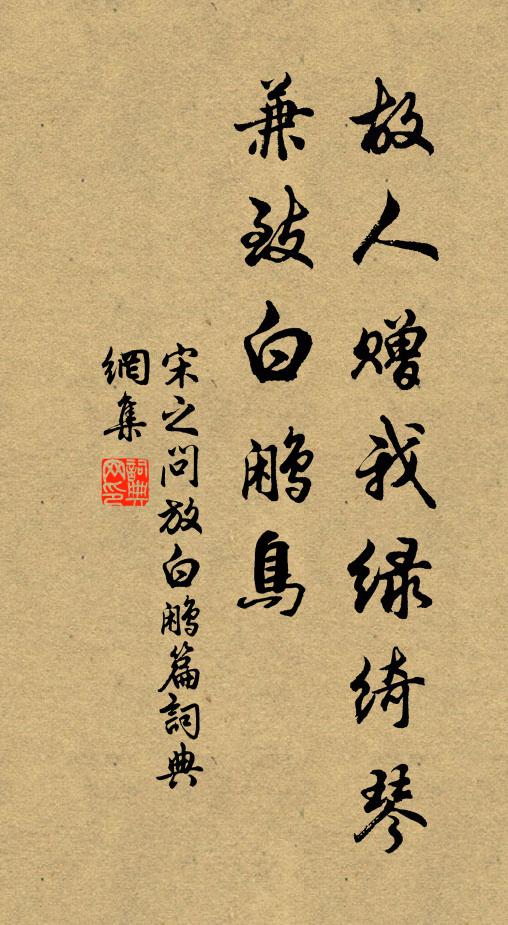 故人赠我绿绮琴
兼致白鹇鳥
宋之问放白鹇篇詞典
網集
詞典
网印